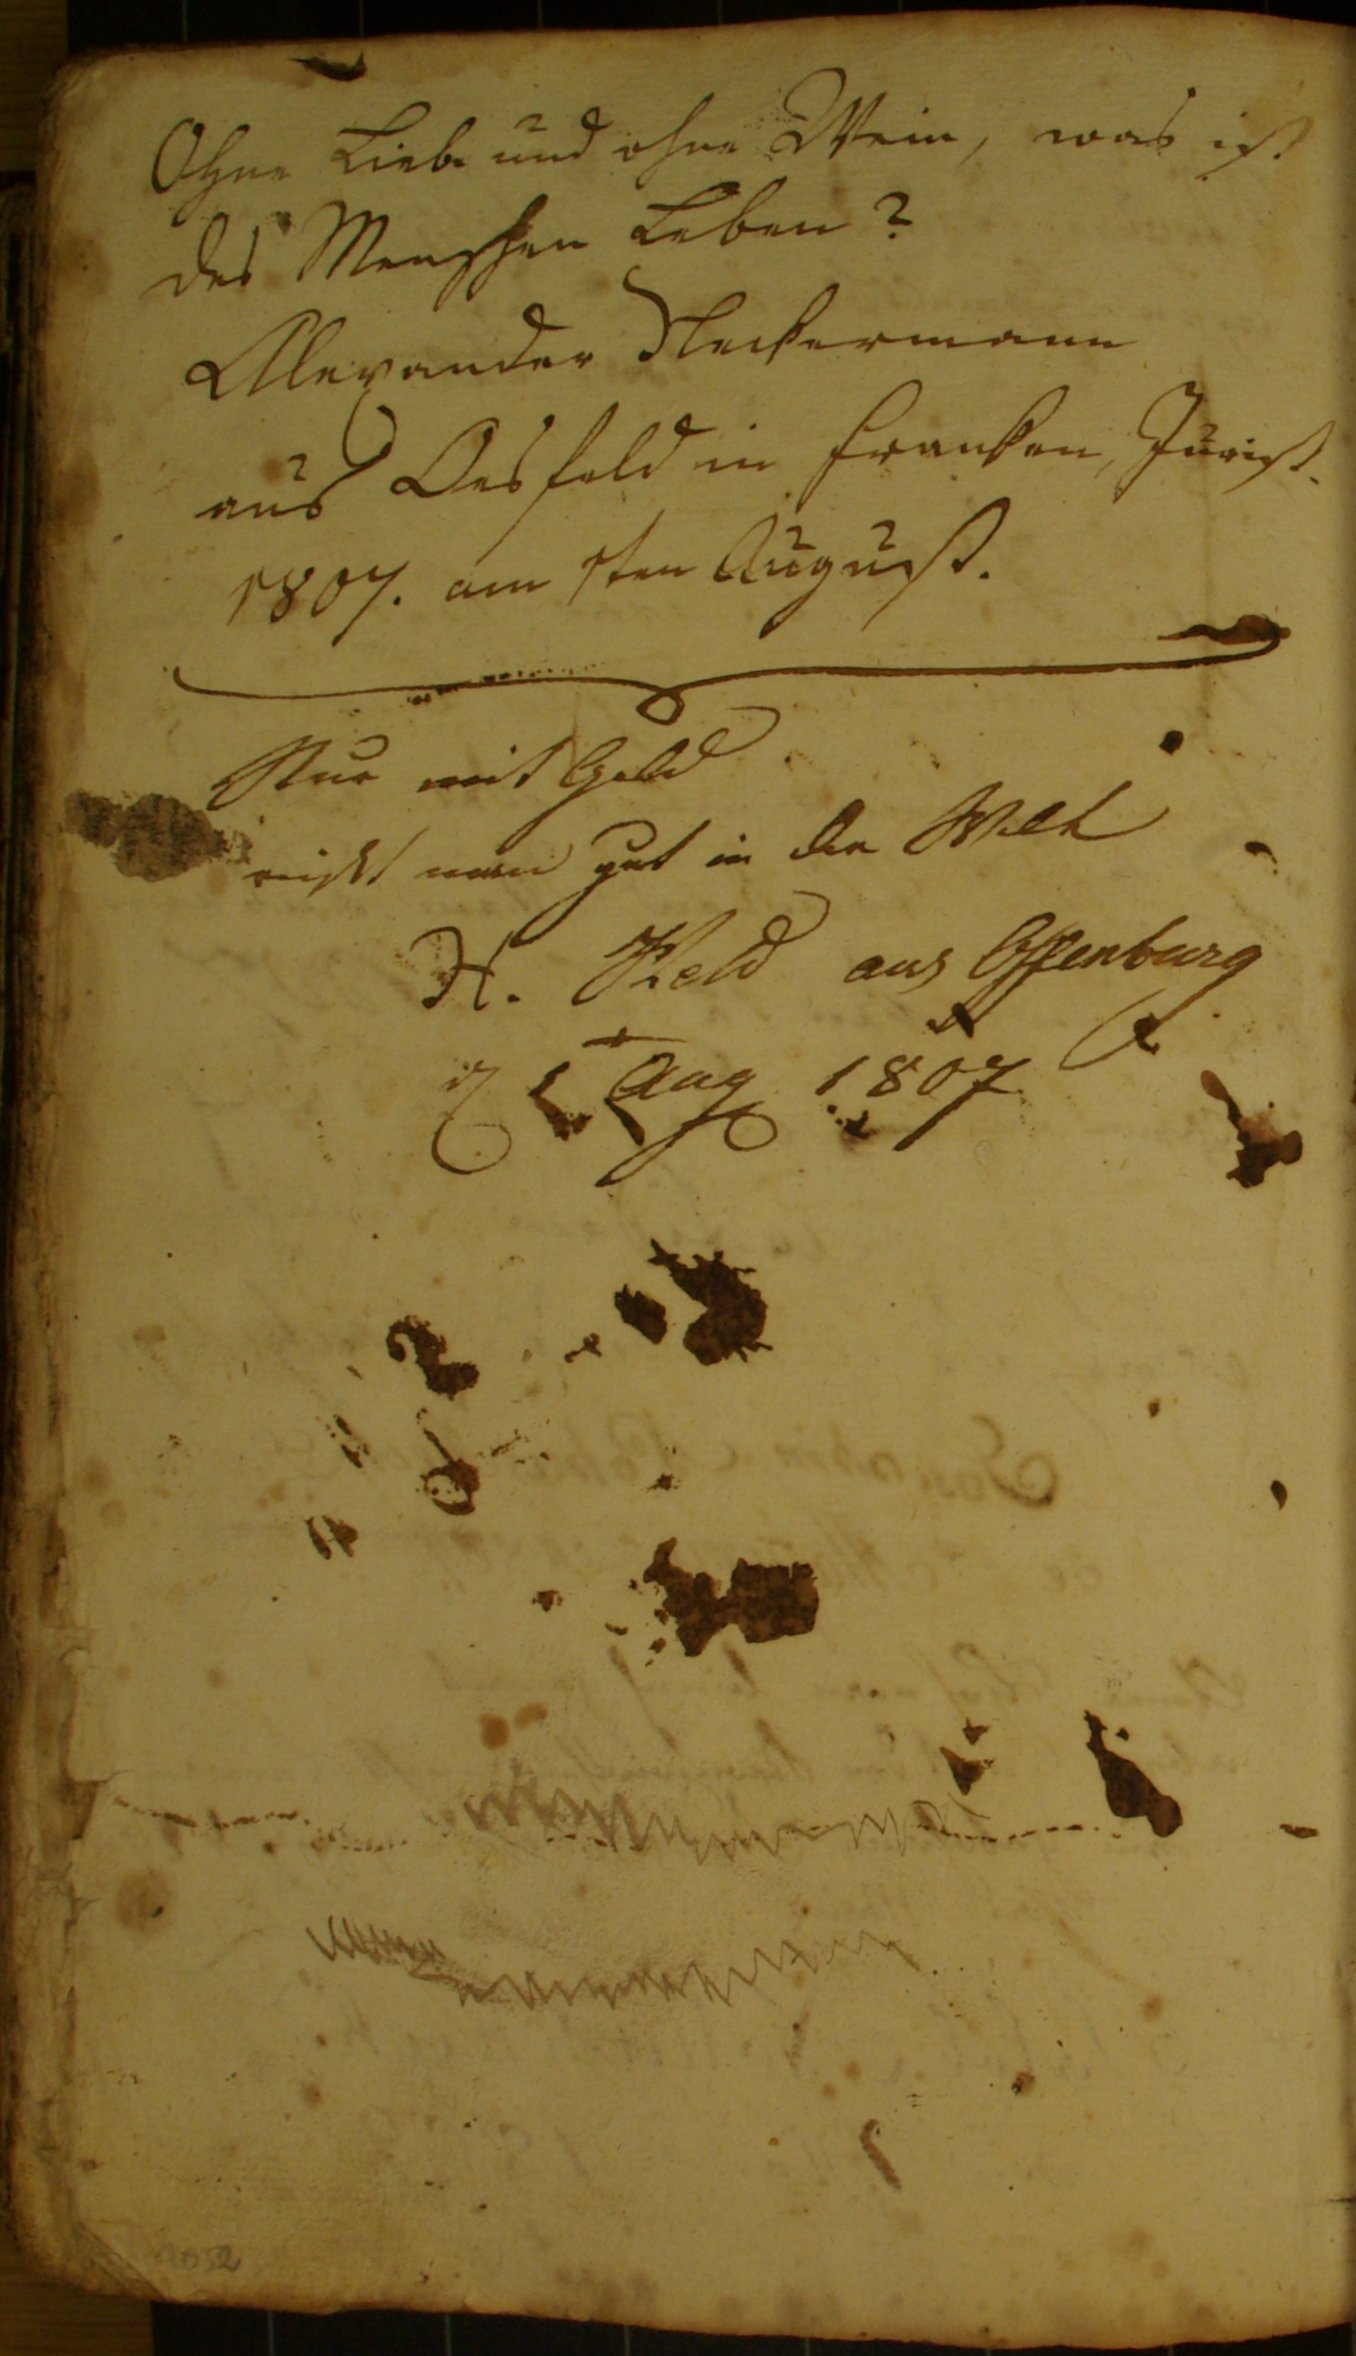 Ohne Liebe und ohne Wein, was ist
des Menschen Leben?
Alexander Neckermann
aus Oesfeld in Franken, Jurist.
1807. am 1ten August.
Nur mit Geld
reist man gut in der Welt
H. Held aus Offenburg
Aug 1807